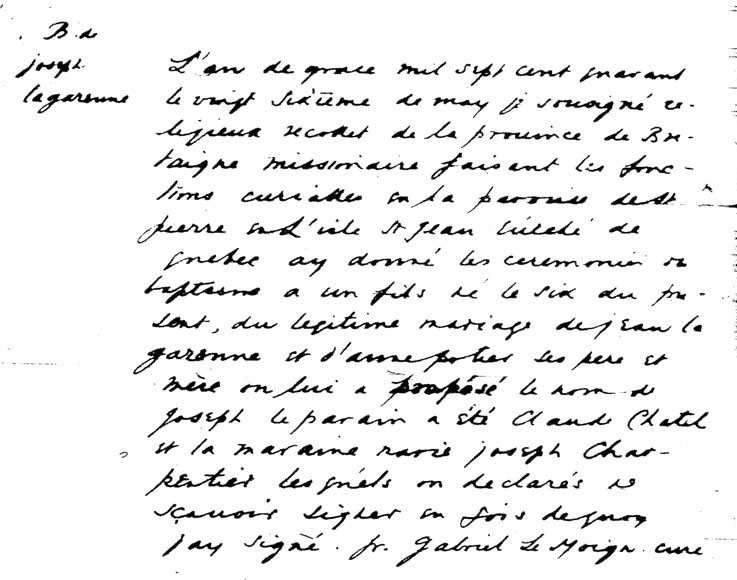 B. de
joseph
lagarenne
L'an de grace mil sept cent quarant
le vingt sixieme de may je sousigné re-
ligieux recollet de la province de Bre-
taigne missionaire faisant les fonc-
tions curialles en la paroisse de st
pierre en L'isle st Jean Evéché de
quebec ay donné les ceremonies de
baptesme a un fils né le six du pre-
sent, du legitime mariage de jean la
garenne et d'anne potier ses pere et
mère on lui a proposé le nom de
joseph le parain a été Claude Chatel
et la maraine marie joseph Char-
pentier lesquels on declarés ne
sçavoir signer en fois de quoy
jay signé. fr. Gabriel Le Moign cure